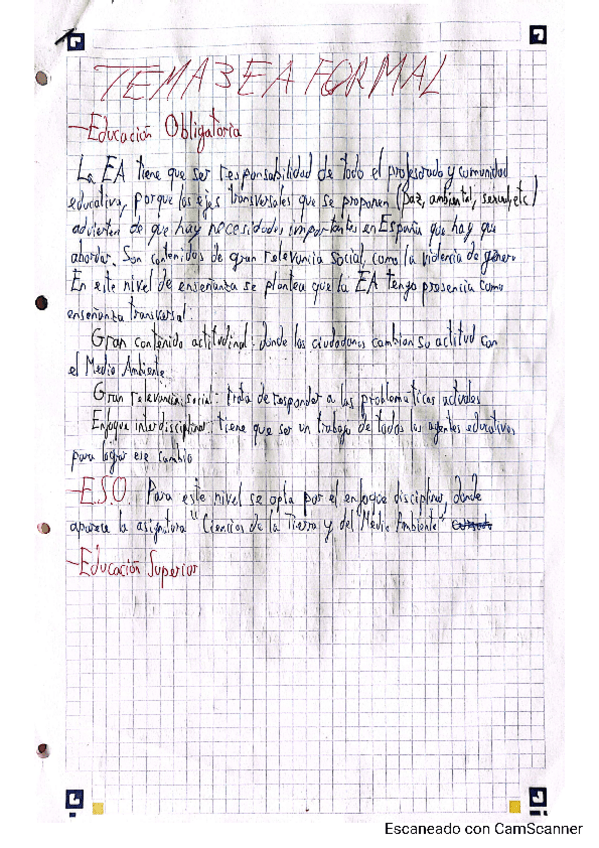 TEMA 3 EA FORMAL
-Educación Obligatoria
La EA tiene que ser responsabilidad de todo el profesorado y comunidad
educativa, porque los ejes transversales que se proponen (paz, ambiental, sexual, etc)
advierten de que hay necesidades importantes en España que hay que
abordar. Son contenidos de gran relevancia social, como la violencia de género
En este nivel de enseñanza se plantea que la EA tenga presencia como
enseñanza transversal.
Gran contenido actitudinal: donde los ciudadanos cambian su actitud con
el Medio Ambiente
Gran relevancia social: trata de responder a las problemáticas actuales
Enfoque interdisciplinar: tiene que ser un trabajo de todos los agentes educativos
para lograr ese cambio
-E.S.O. Para este nivel se opta por el enfoque disciplinar, donde
aparece la asignatura "Ciencias de la Tierra y del Medio Ambiente"
-Educación Superior
Escaneado con CamScanner